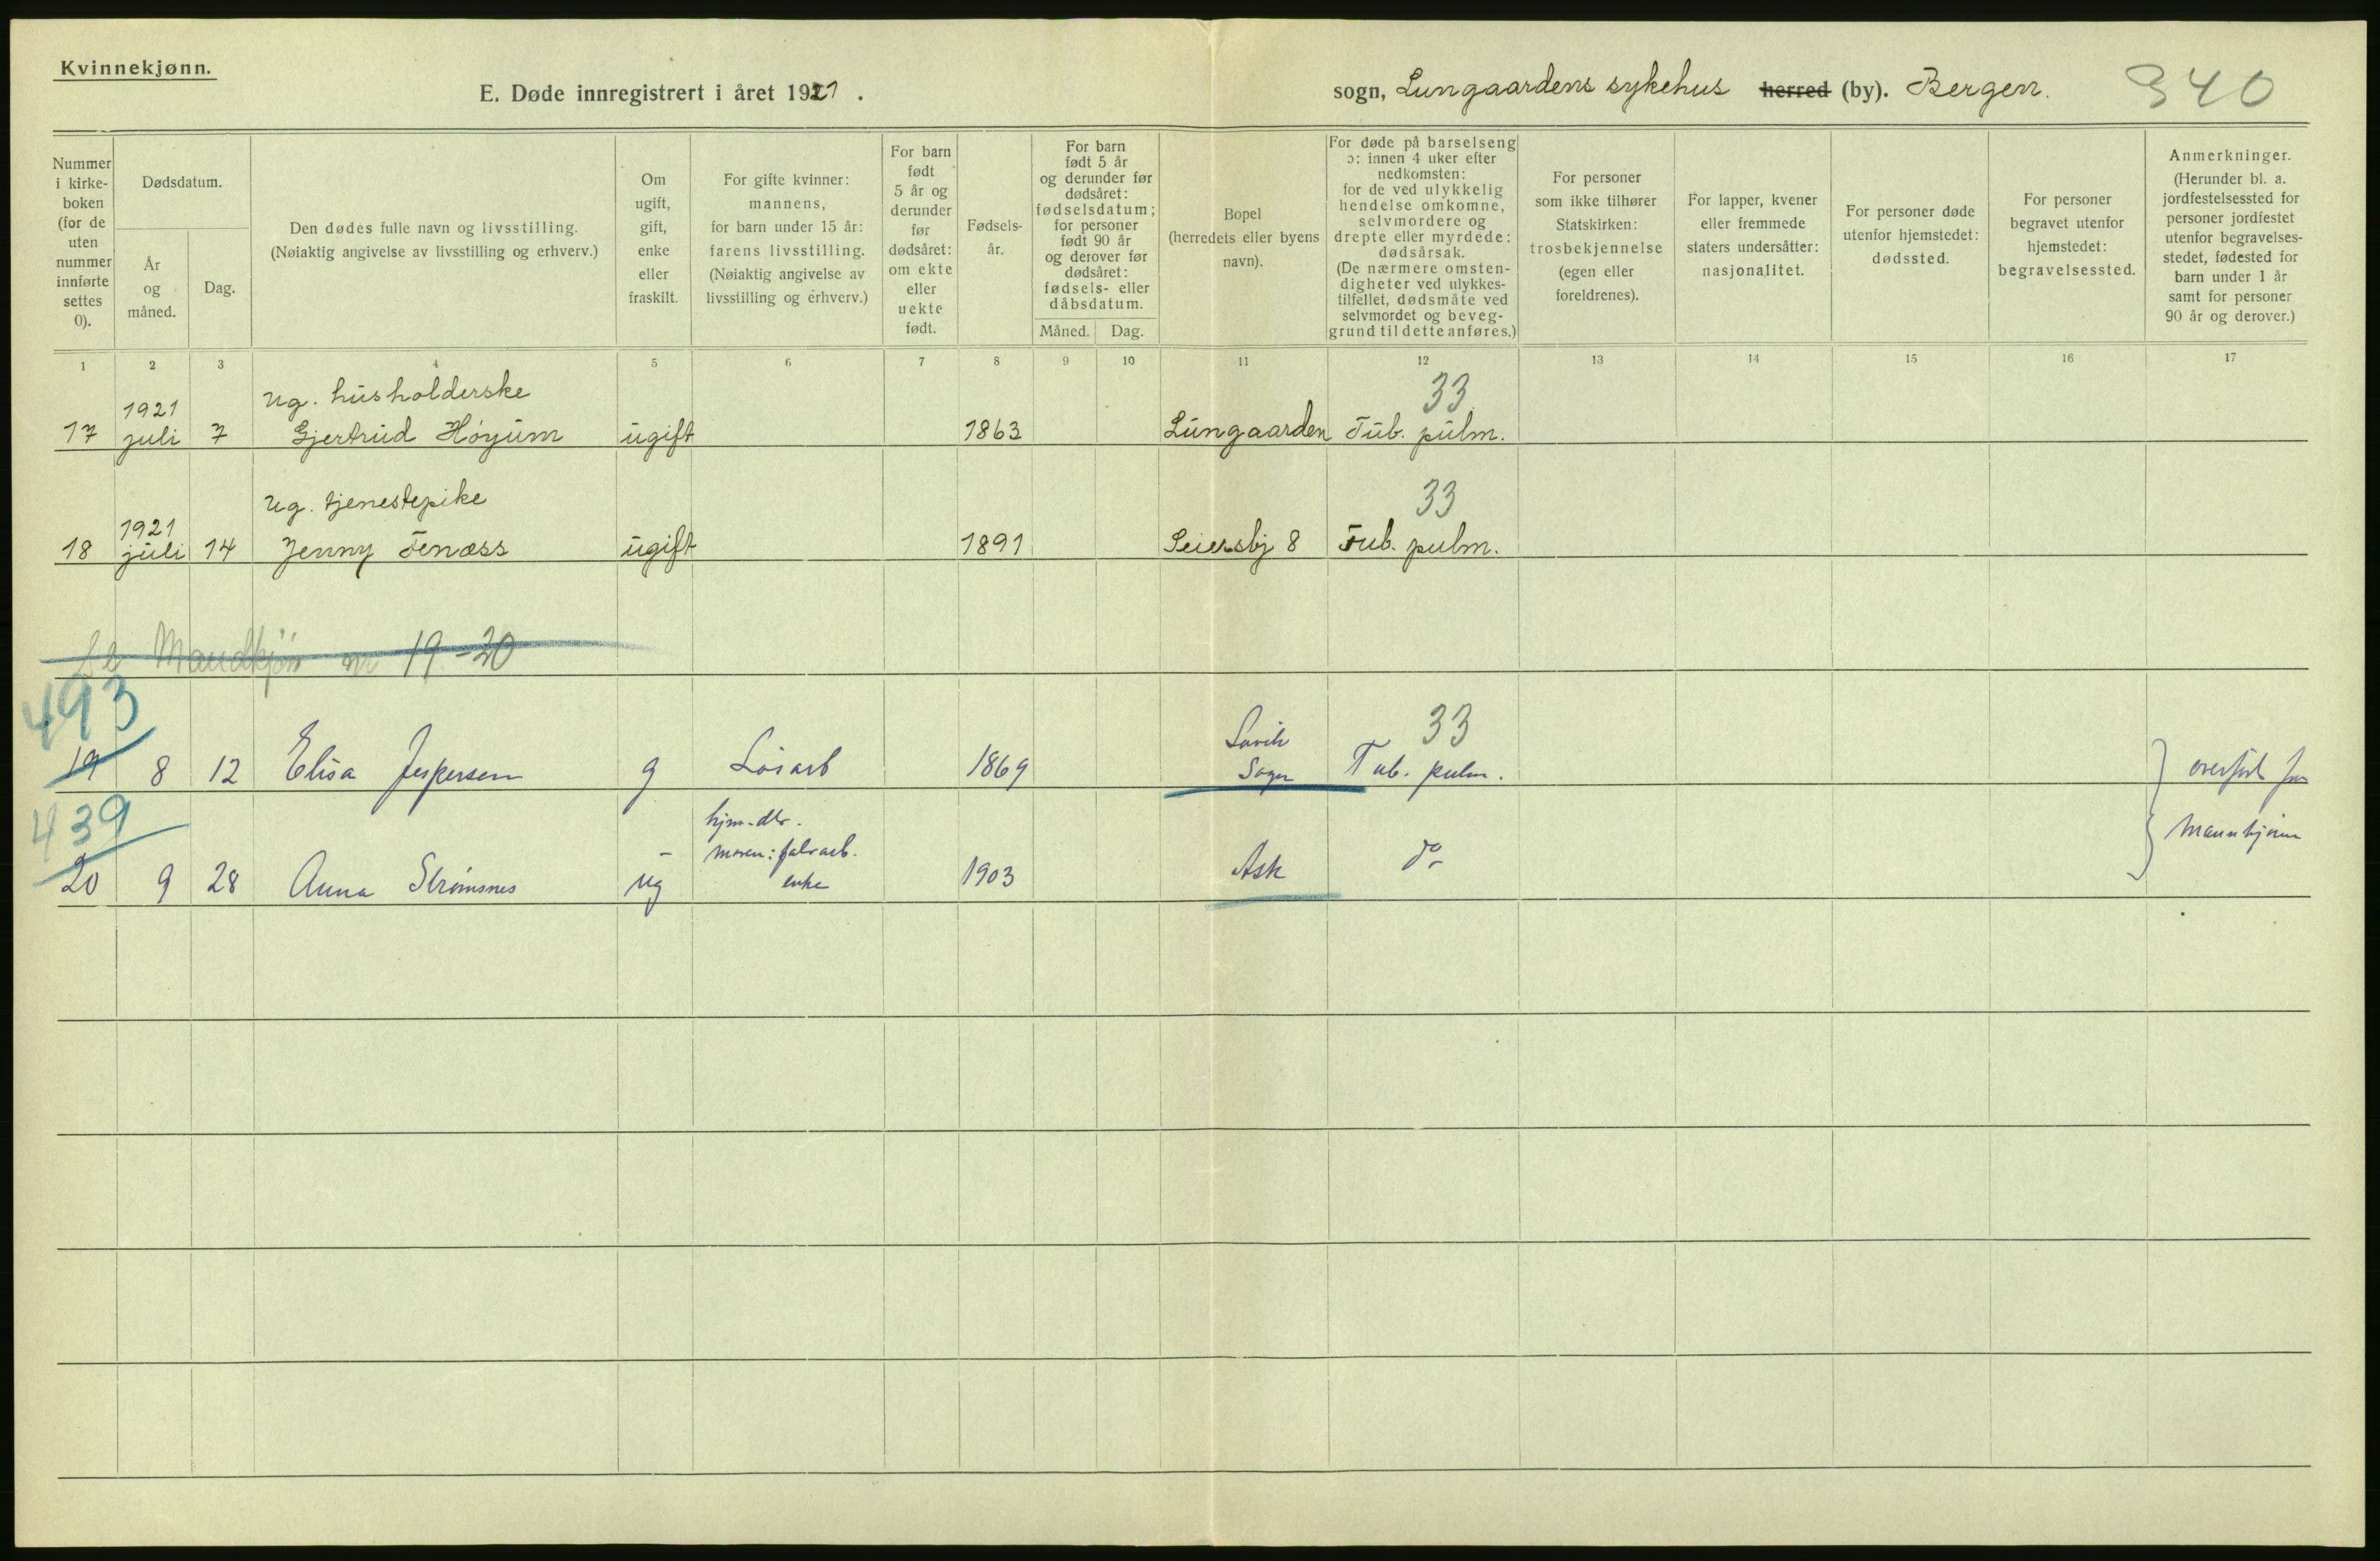 Kvinnekjønn.
E. Døde innregistrert i året 1921.
sogn, Lungaardens sykehus herred (by). Bergen.
340
Nummer i kirke-boken (for de uten nummer innførte settes 0).
Dødsdatum.
År og måned.
Dag.
Den dødes fulle navn og livsstilling.
(Nøiaktig angivelse av livsstilling og erhverv.)
Om ugift, gift, enke eller fraskilt.
For gifte kvinner: mannens, for barn under 15 år: farens livsstilling. (Nøiaktig angivelse av livsstilling og erhverv.)
For barn født 5 år og derunder før dødsåret: om ekte eller uekte født.
Fødsels-år.
For barn født 5 år og derunder før dødsåret: fødselsdatum; for personer født 90 år og derover før dødsåret: fødsels- eller dåbsdatum.
Måned. Dag.
Bopel (herredets eller byens navn).
For døde på barselseng ɔ: innen 4 uker efter nedkomsten: for de ved ulykkelig hendelse omkomne, selvmordere og drepte eller myrdede: dødsårsak. (De nærmere omsten-digheter ved ulykkes-tilfellet, dødsmåte ved selvmordet og beveg-grund til dette anføres.)
For personer som ikke tilhører Statskirken: trosbekjennelse (egen eller foreldrenes).
For lapper, kvener eller fremmede staters undersåtter: nasjonalitet.
For personer døde utenfor hjemstedet: dødssted.
For personer begravet utenfor hjemstedet: begravelsessted.
Anmerkninger. (Herunder bl. a. jordfestelsessted for personer jordfestet utenfor begravelses-stedet, fødested for barn under 1 år samt for personer 90 år og derover.)
1 2 3 4 5 6 7 8 9 10 11 12 13 14 15 16 17
1921 ug. husholderske 33
17 juli 7 Gjertrud Høyum ugift 1863 Lungaarden Tub. pulm.
1921 ug. tjenestepike 33
18 juli 14 Jenny Tenæss ugift 1891 Seiersbj 8 Tub. pulm.
Mandkjön nr 19-20
493
33
Lavik
19 8 12 Elisa Jespersen g Løsarb 1869 Sogn Tub. pulm. overført fra
439
hjm. dtr. Mannkjønn
moren: fabr arb.
20 9 28 Anna Strømsnes - ug enke 1903 Ask do